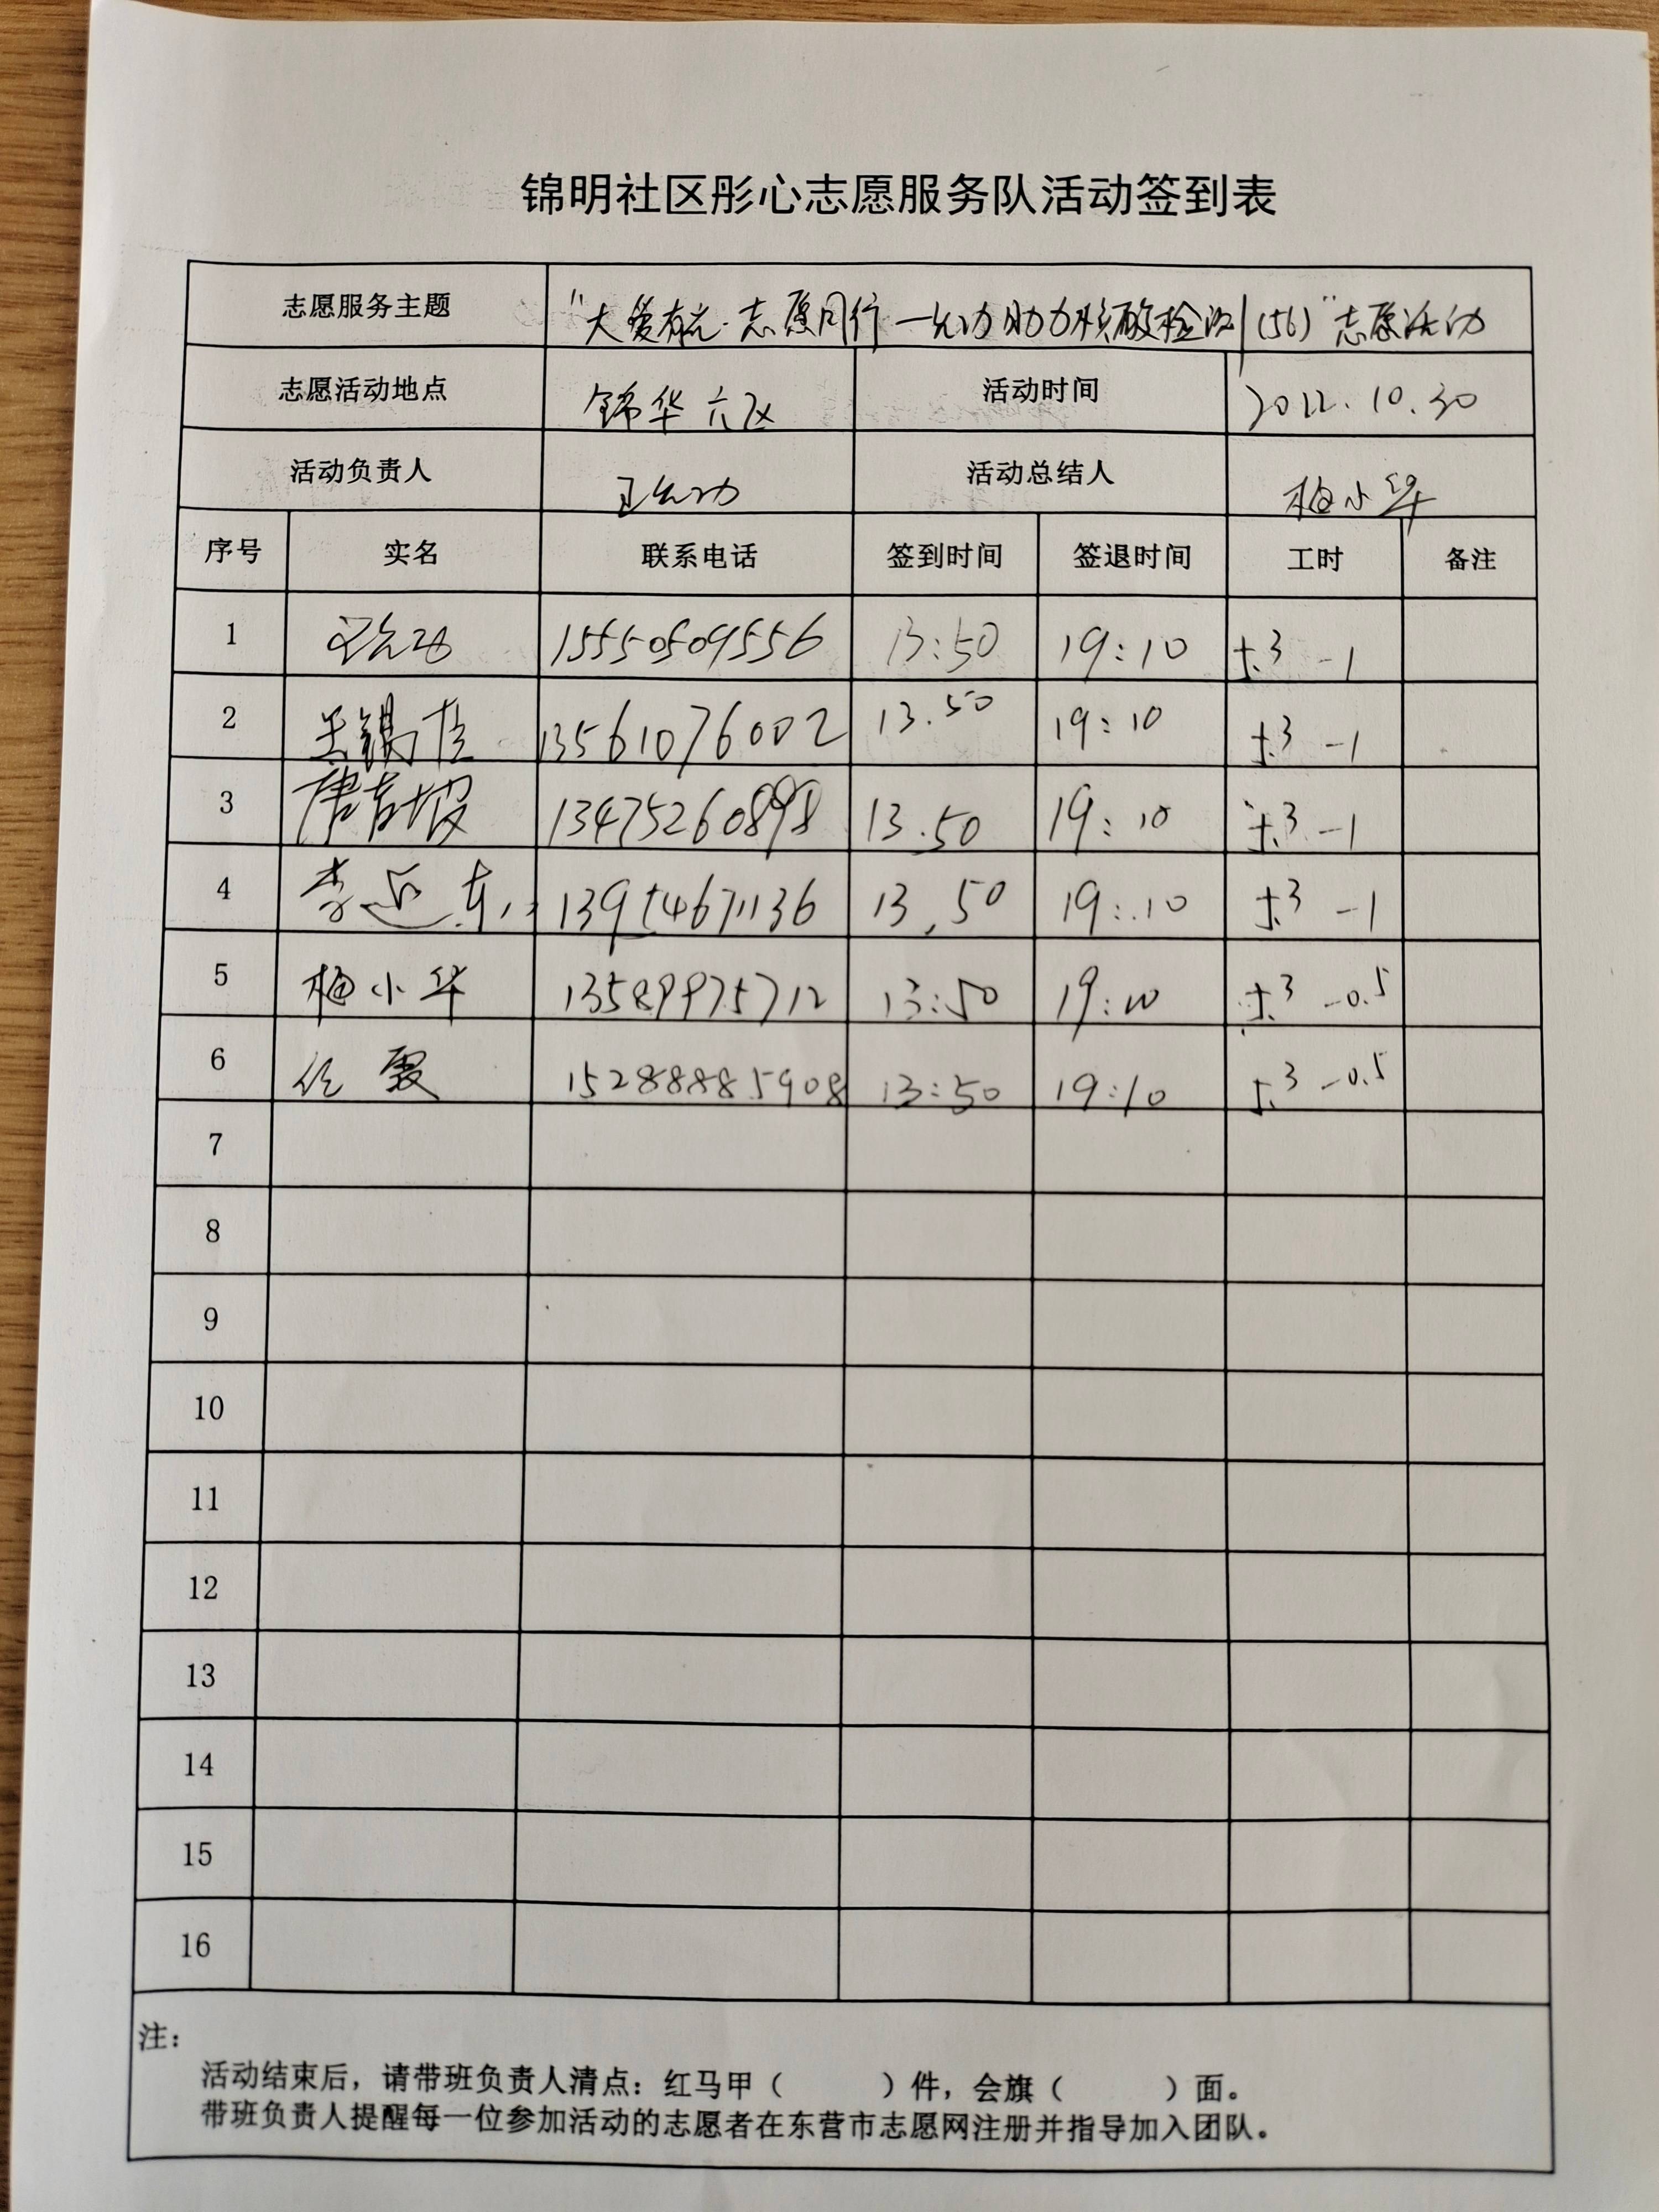 锦明社区彤心志愿服务队活动签到表
志愿服务主题 "大爱有光·志愿同行—允功助力核酸检测(56)"志愿活动
志愿活动地点 锦华六区 活动时间 2022.10.30
活动负责人 王允功 活动总结人 梅小华
序号 实名 联系电话 签到时间 签退时间 工时 备注
1 王允功 15550509556 13:50 19:10 5.3 -1
2 王锡 13561076002 13.50 19:10 5.3 -1
3 唐吉坡 13475260898 13.50 19:10 5.3 -1
4 李延东 13954671136 13.50 19:10 5.3 -1
5 梅小华 13589975712 13:50 19:10 5.3 -0.5
6 任霞 15288885908 13:50 19:10 5.3 -0.5
7
8
9
10
11
12
13
14
15
16
注：
活动结束后，请带班负责人清点：红马甲（ ）件，会旗（ ）面。
带班负责人提醒每一位参加活动的志愿者在东营市志愿网注册并指导加入团队。